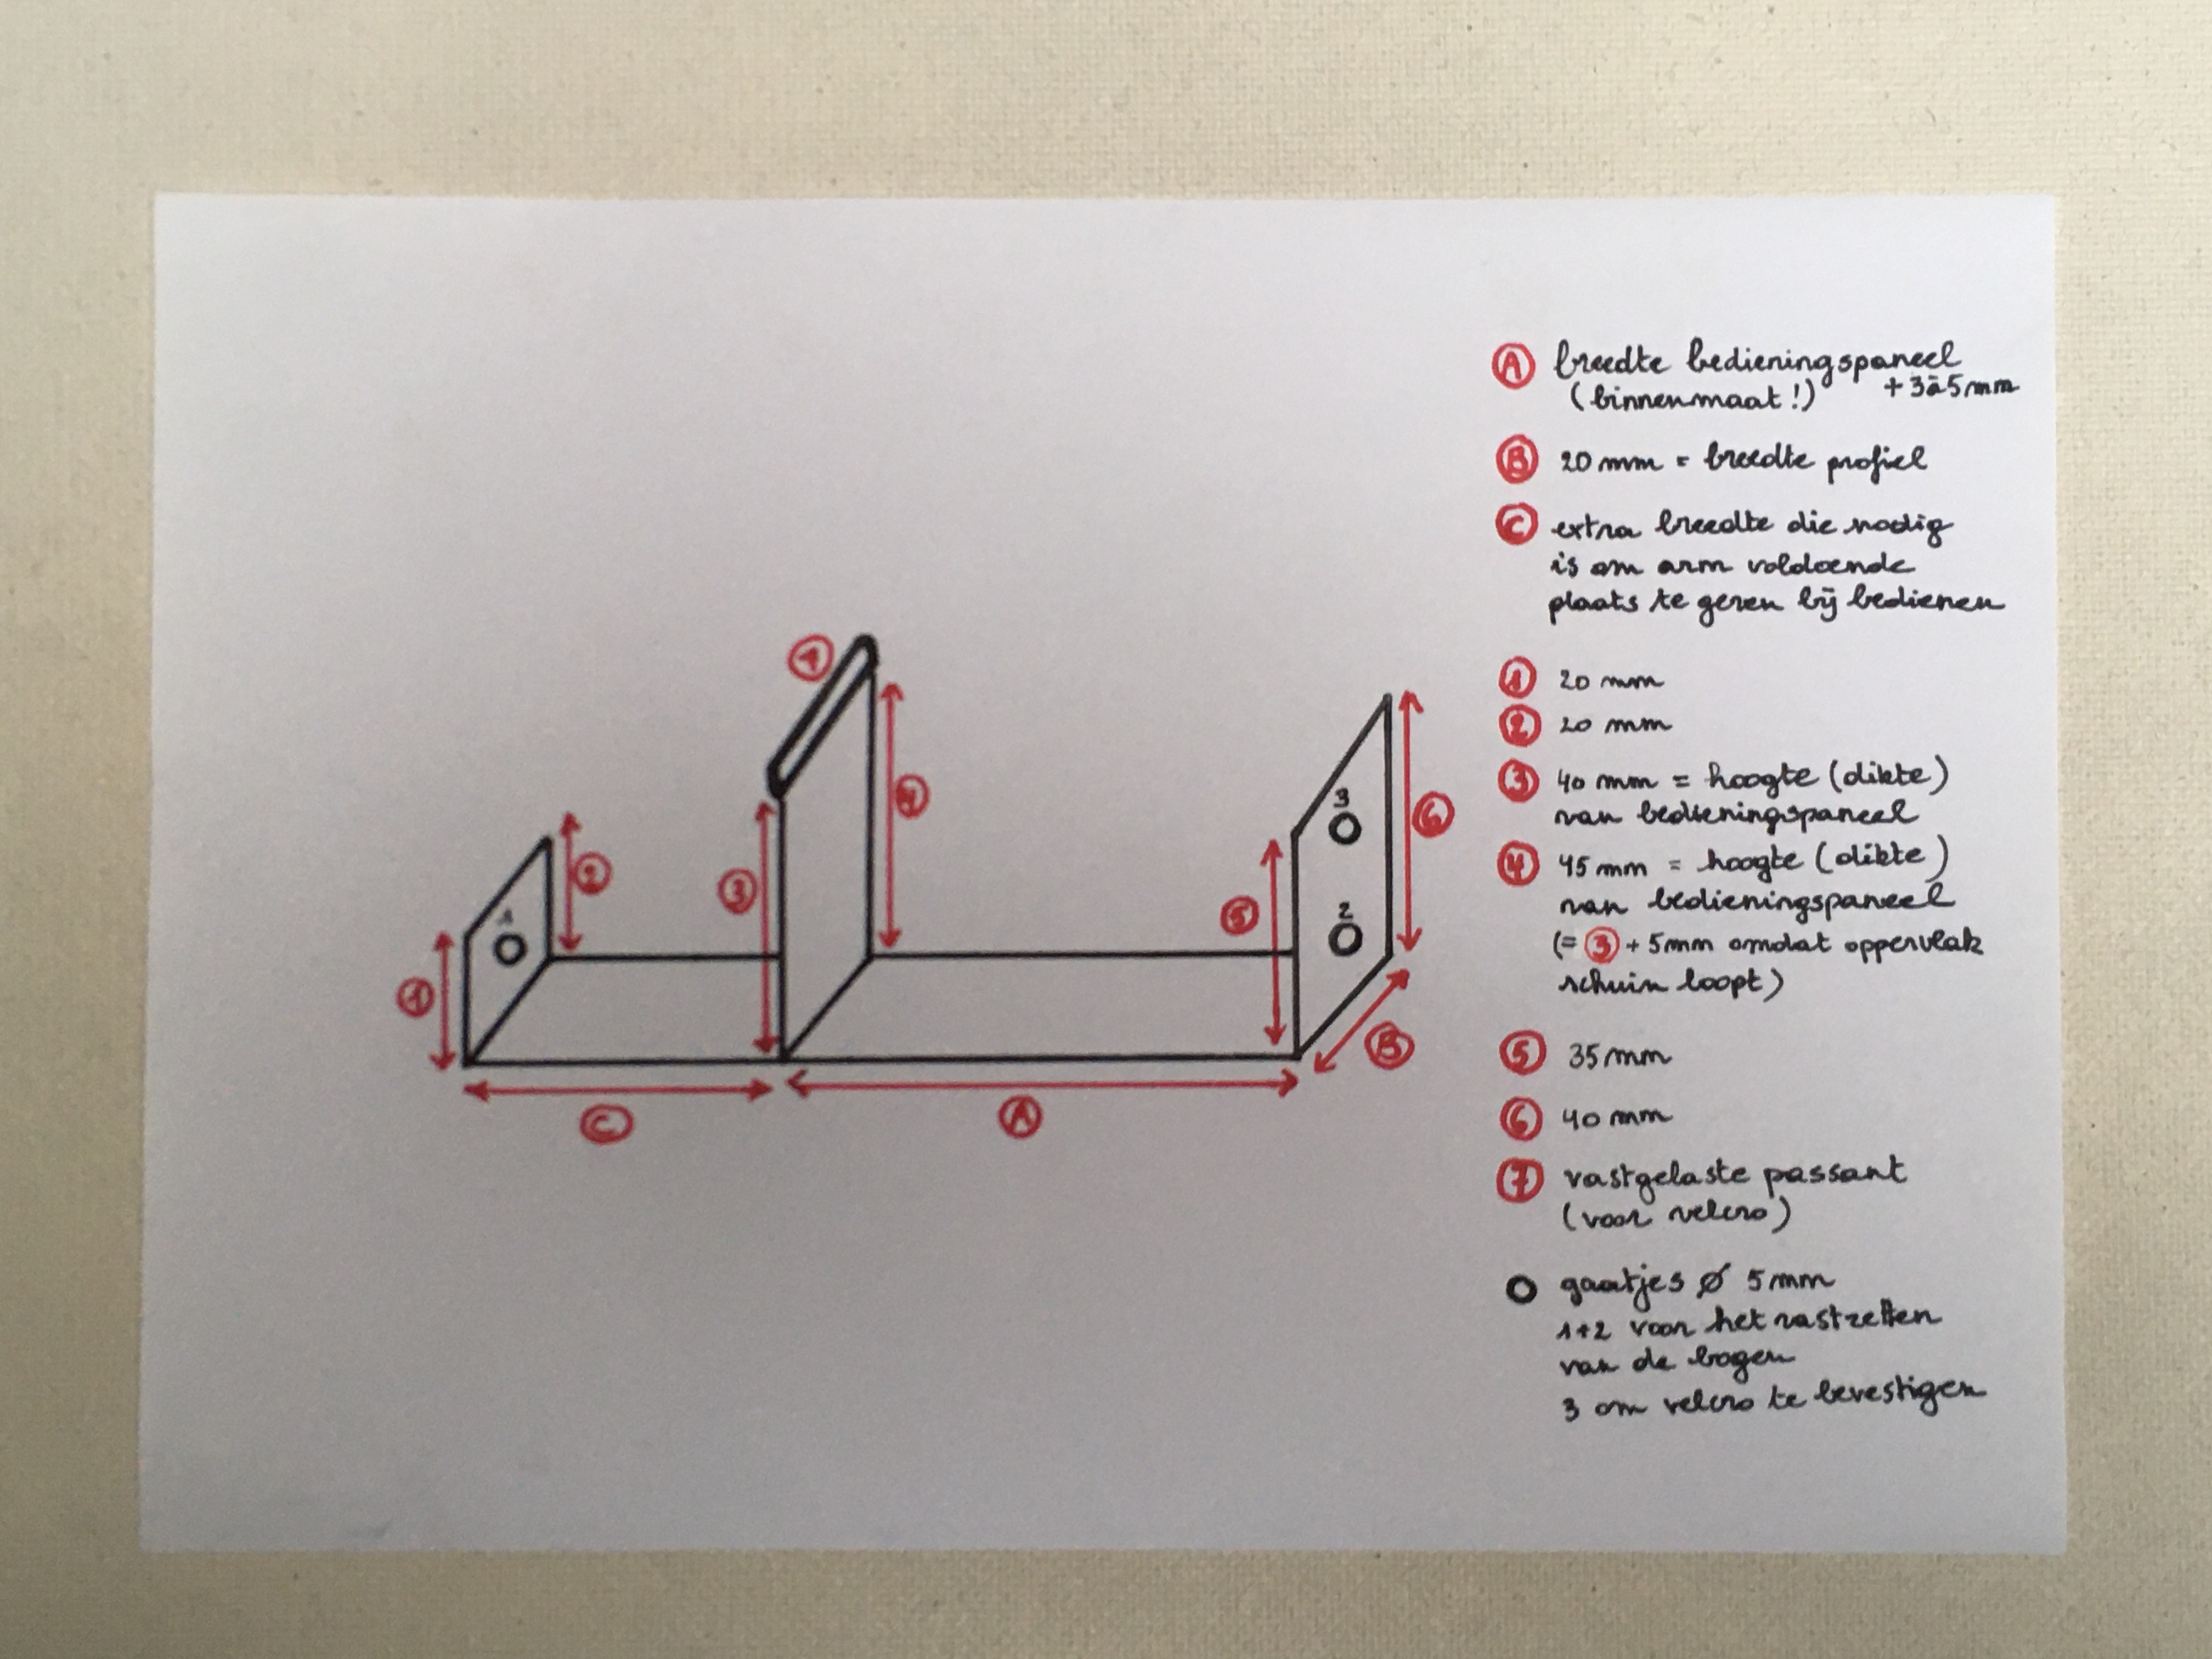 A breedte bedieningspaneel
(binnenmaat!) +3à5mm
B 20 mm = breedte profiel
C extra breedte die nodig
is om arm voldoende
plaats te geven bij bedienen
1 20 mm
2 20 mm
3 40 mm = hoogte (dikte)
van bedieningspaneel
4 45 mm = hoogte (dikte)
van bedieningspaneel
(= 3 + 5mm omdat oppervlak
schuin loopt)
5 35mm
6 40 mm
7 vastgelaste passant
(voor velcro)
O gaatjes Ø 5mm
1+2 voor het vastzetten
van de bogen
3 om velcro te bevestigen
7
4
3
6
2
3
1
5
2
1
B
C
A
1